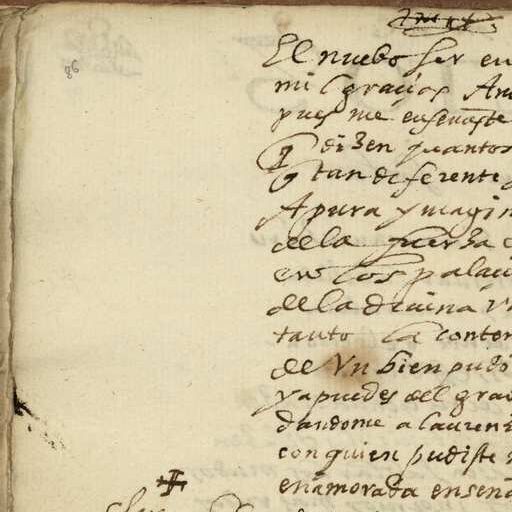 El nuebo ser en
mil gracias Am
pues me enseñaste
q dizen quantos
q tan diferente
Apura ymagin
de la fuerza
en los palaci
de la divina v
tanto la conten
de Un bien pudo
ya puedes del gra
dandome a laurens
con quien pudiste
enamorada ensena